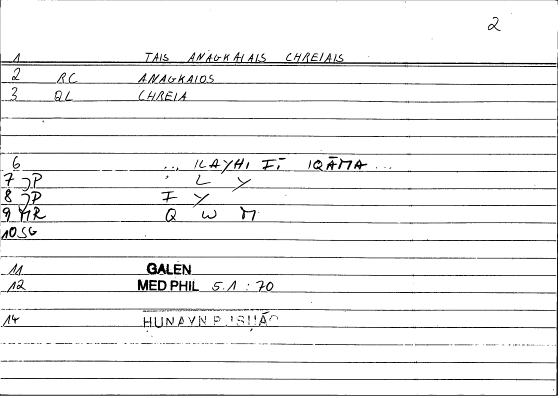 2
1 TAIS ANAGKAIAIS CHREIAIS
2 RC ANAGKAIOS
3 QL CHREIA
6 ... ILAYHI FĪ IQĀMA ...
7 JP ' L Y
8 JP F Y
9 MR Q W M
10 SG
11 GALEN
12 MED PHIL 5.1 : 70
14 HUNAYN B. ISHĀQ